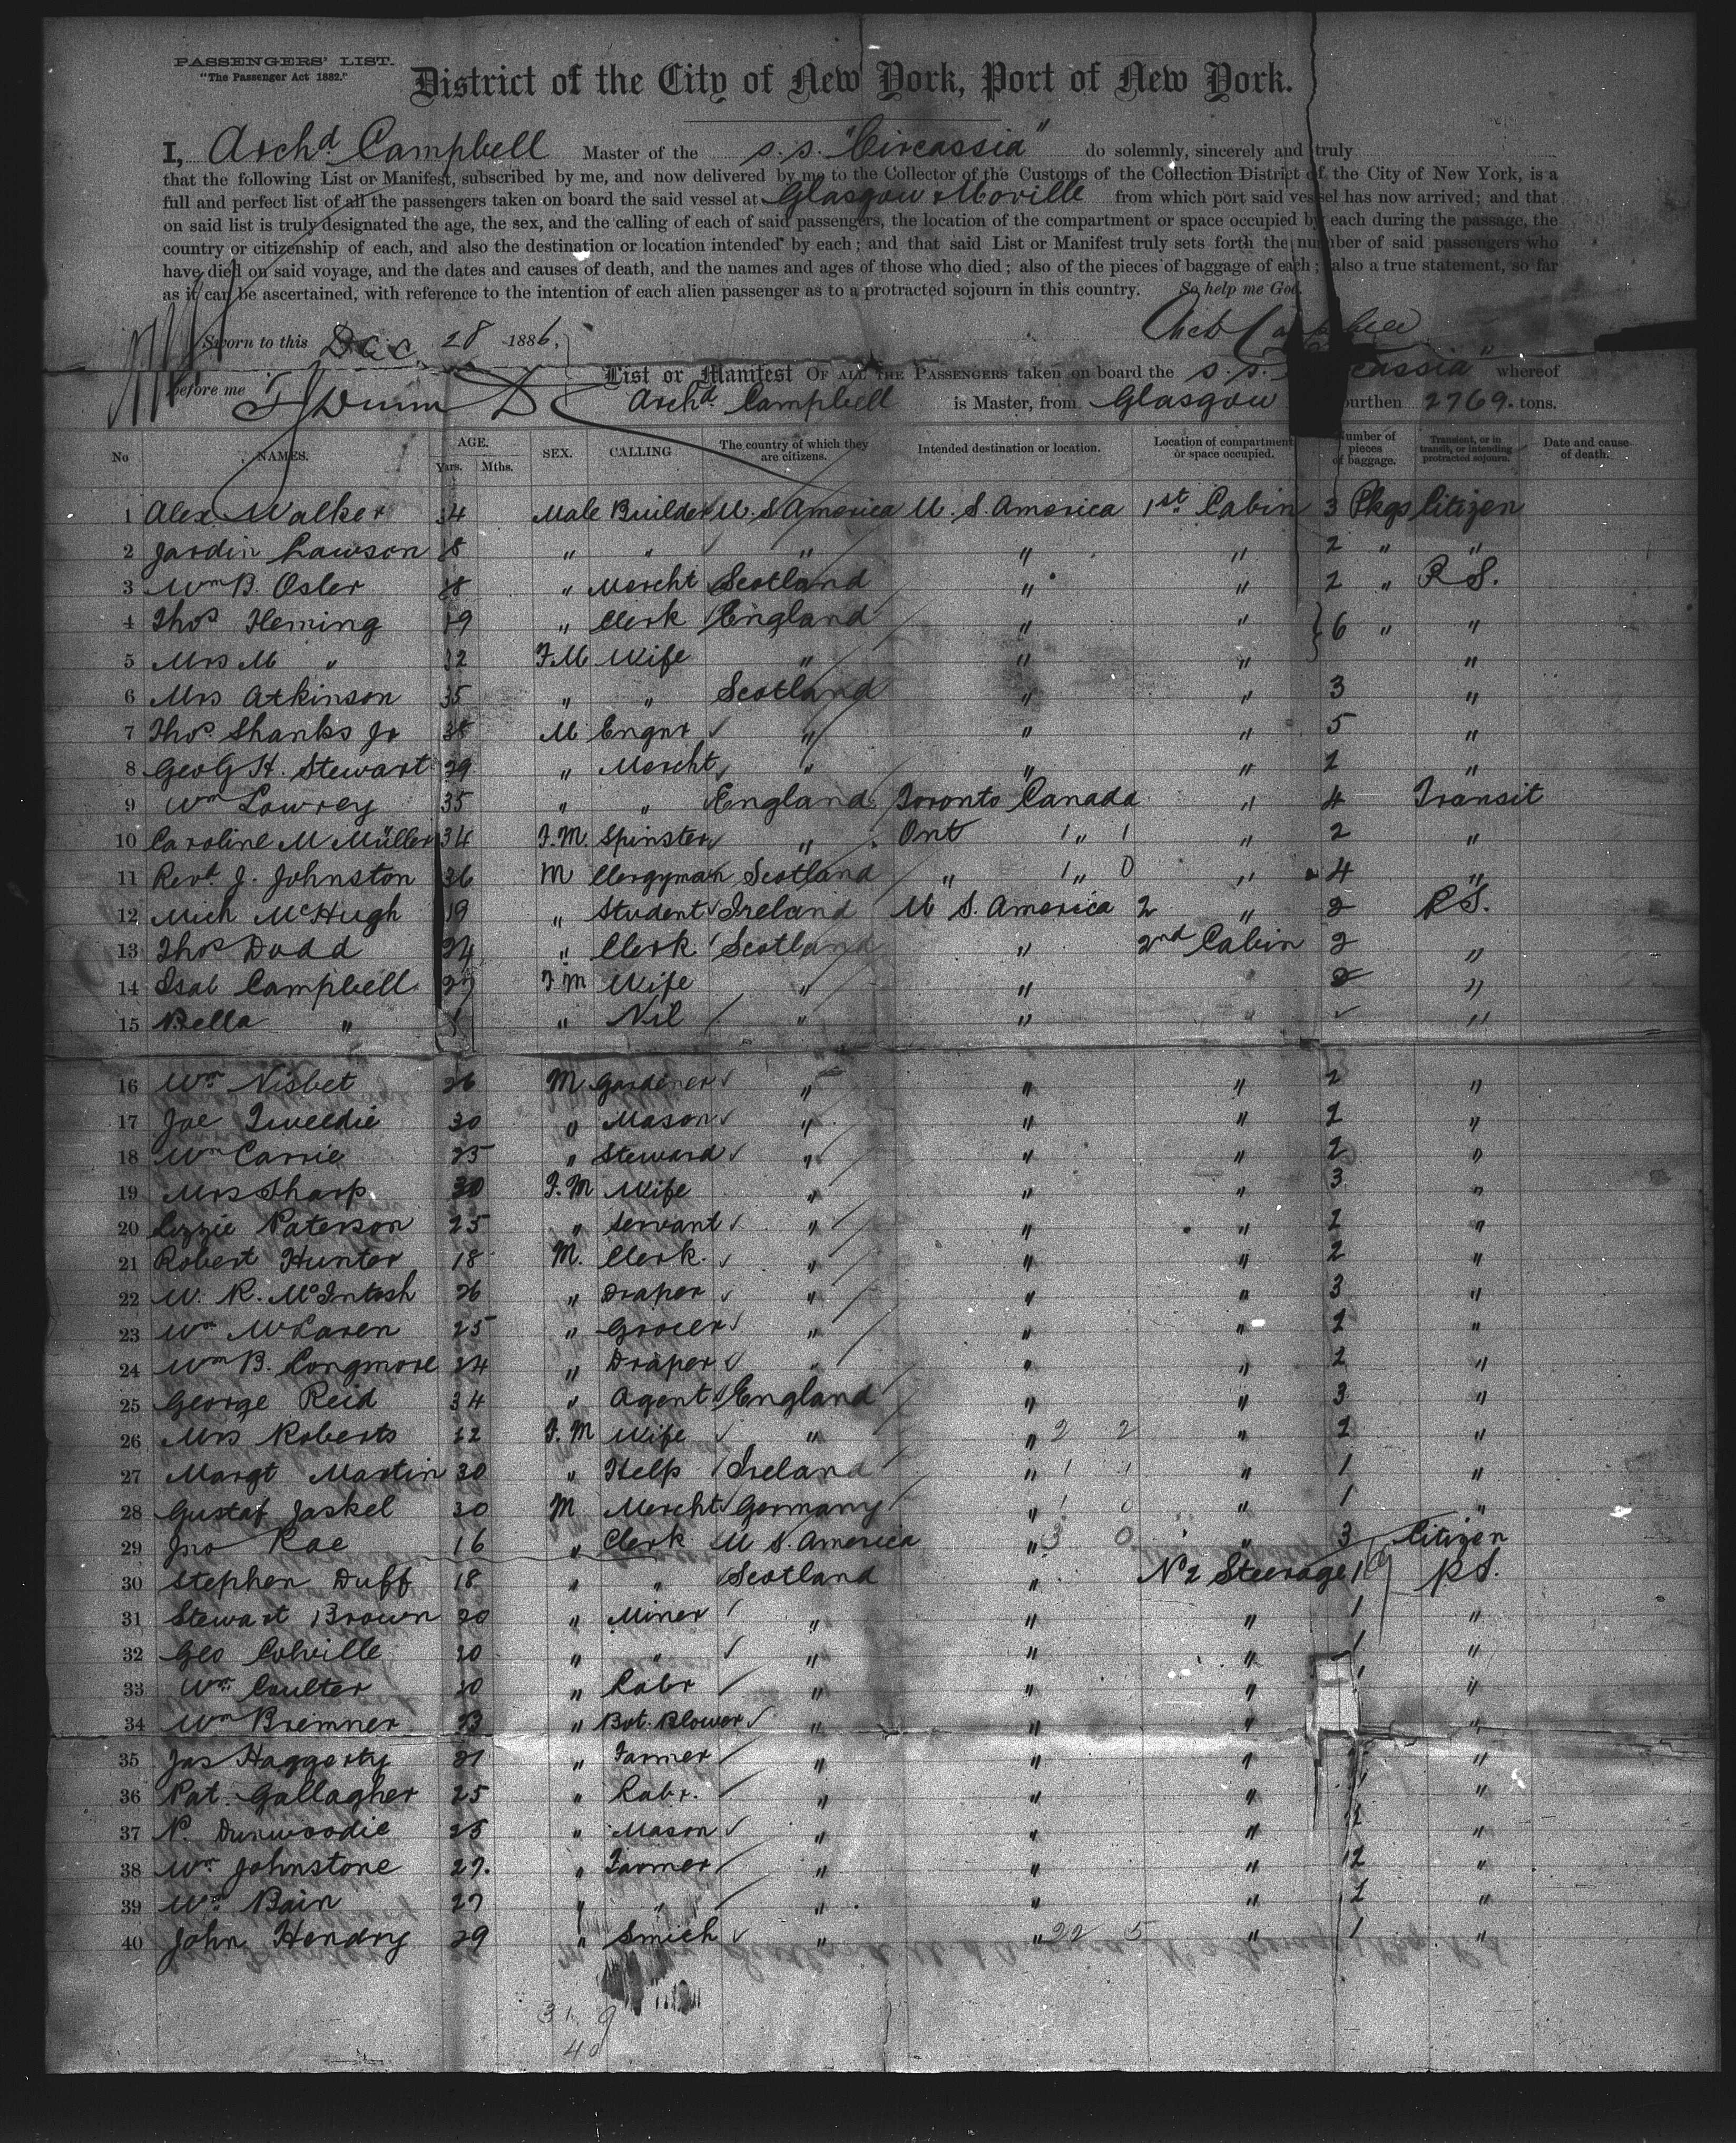 PASSENGERS' LIST.
"The Passenger Act 1882."
District of the City of New York, Port of New York.
I, Archd Campbell Master of the s.s. "Circassia" do solemnly, sincerely and truly
that the following List or Manifest, subscribed by me, and now delivered by me to the Collector of the Customs of the Collection District of the City of New York, is a
full and perfect list of all the passengers taken on board the said vessel at Glasgow & Moville from which port said vessel has now arrived; and that
on said list is truly designated the age, the sex, and the calling of each of said passengers, the location of the compartment or space occupied by each during the passage, the
country or citizenship of each, and also the destination or location intended by each; and that said List or Manifest truly sets forth the number of said passengers who
have died on said voyage, and the dates and causes of death, and the names and ages of those who died; also of the pieces of baggage of each; also a true statement, so far
as it can be ascertained, with reference to the intention of each alien passenger as to a protracted sojourn in this country. So help me God.
Sworn to this Dec 28 1886, Archd Campbell
List or Manifest OF ALL THE PASSENGERS taken on board the s.s. cassia" whereof
before me Archd Campbell is Master, from Glasgow burthen 2769 tons.
No NAMES. AGE. Yars. Mths. SEX. CALLING The country of which they are citizens. Intended destination or location. Location of compartment or space occupied. Number of pieces of baggage. Transient, or in transit, or intending protracted sojourn. Date and cause of death.
1 Alex Walker 34 Male Builder U. S America U. S. America 1st Cabin 3 Pkgs Citizen
2 Jardin Lawson 18 " " " " " 2 " "
3 Wm B. Osler 18 " Mercht Scotland " " 2 " P S.
4 Thos Fleming 19 " Clerk England " " } 6 " "
5 Mrs M " 32 F.M Wife " " " "
6 Mrs Atkinson 35 " " Scotland " " 3 "
7 Thos Shanks Jr 38 M Engnr " " " 5 "
8 Geo G H. Stewart 29 " Mercht " " " 2 "
9 Wm Lowrey 35 " " England Toronto Canada " 4 Transit
10 Caroline M Müller 34 F.M. Spinster " Ont " 1 1 " 2 "
11 Revd J. Johnston 36 M Clergyman Scotland " " 1 0 " 4 "
12 Mich McHugh 19 " Student Ireland U S. America 2 " 2 P S.
13 Thos Dodd 24 " Clerk Scotland " 2nd Cabin 2 "
14 Isab Campbell 27 F M Wife " " 2 "
15 Bella " " Nil " " "
16 Wm Nisbet 26 M Gardener " " " 2 "
17 Joe Tweedie 30 " Mason " " " 2 "
18 Wm Carrie 25 " Steward " " " 2 "
19 Mrs Sharp 30 F.M Wife " " " 3 "
20 Lizzie Paterson 25 " Servant " " " 2 "
21 Robert Hunter 18 M. Clerk " " " 2 "
22 W. R. McIntosh 26 " Draper " " " 3 "
23 Wm McLaren 25 " Grocer " " " 2 "
24 Wm B. Longmore 24 " Draper " " " 2 "
25 George Reid 34 " Agent England " " 3 "
26 Mrs Roberts 32 F.M Wife " " 2 2 " 2 "
27 Margt Martin 30 " Help Ireland " 1 1 " 1 "
28 Gustaf Jaskel 30 M Mercht Germany " 1 0 " 1 "
29 Jno Rae 16 " Clerk U S. America " 3 0 " 3 Citizen
30 Stephen Duff 18 " " Scotland " No 2 Steerage 1 P S.
31 Stewart Brown 20 " Miner " " " 1 "
32 Geo Colville 20 " " " " " 1 "
33 Wm Coulter 20 " Labr " " " "
34 Wm Bremner 23 " Bot. Blower " " " "
35 Jas Haggerty 21 " Farmer " " " "
36 Pat. Gallagher 25 " Labr. " " " 1 "
37 N. Dunwoodie 25 " Mason " " " "
38 Wm Johnstone 27. " Farmer " " " 2 "
39 Wm Bain 27 " " " " " "
40 John Hendry 29 " Smith " " 22 5 " 1 "
31 9
40